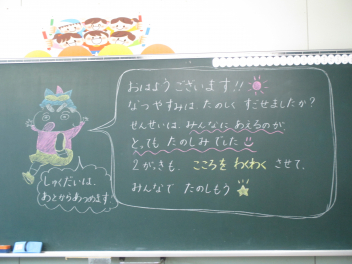 おはようございます!!
なつやすみは、たのしく すごせましたか?
せんせいは、みんなに あえるのが
とっても たのしみでした
2がっきも、こころを わくわく させて、
みんなで たのしもう
しゅくだいは、
あとからあつめます